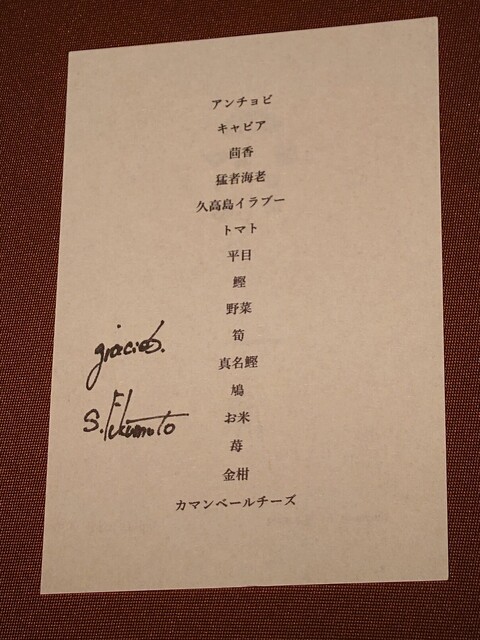 アンチョビ
キャビア
茴香
猛者海老
久高島イラブー
トマト
平目
鰹
野菜
筍
真名鰹
鳩
お米
苺
金柑
カマンベールチーズ
gracias.
S. Fukumoto